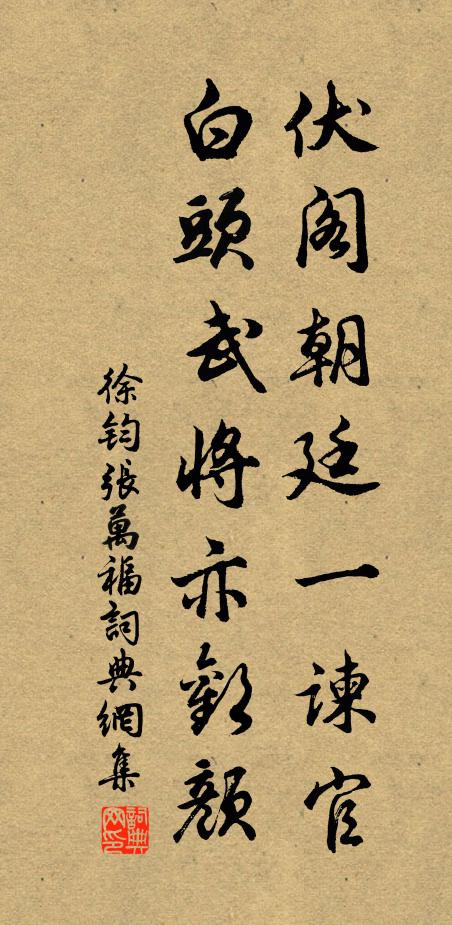 伏阁朝廷一谏官
白頭武將亦歡顏
徐鈞張萬福詞典網集
詞典网印